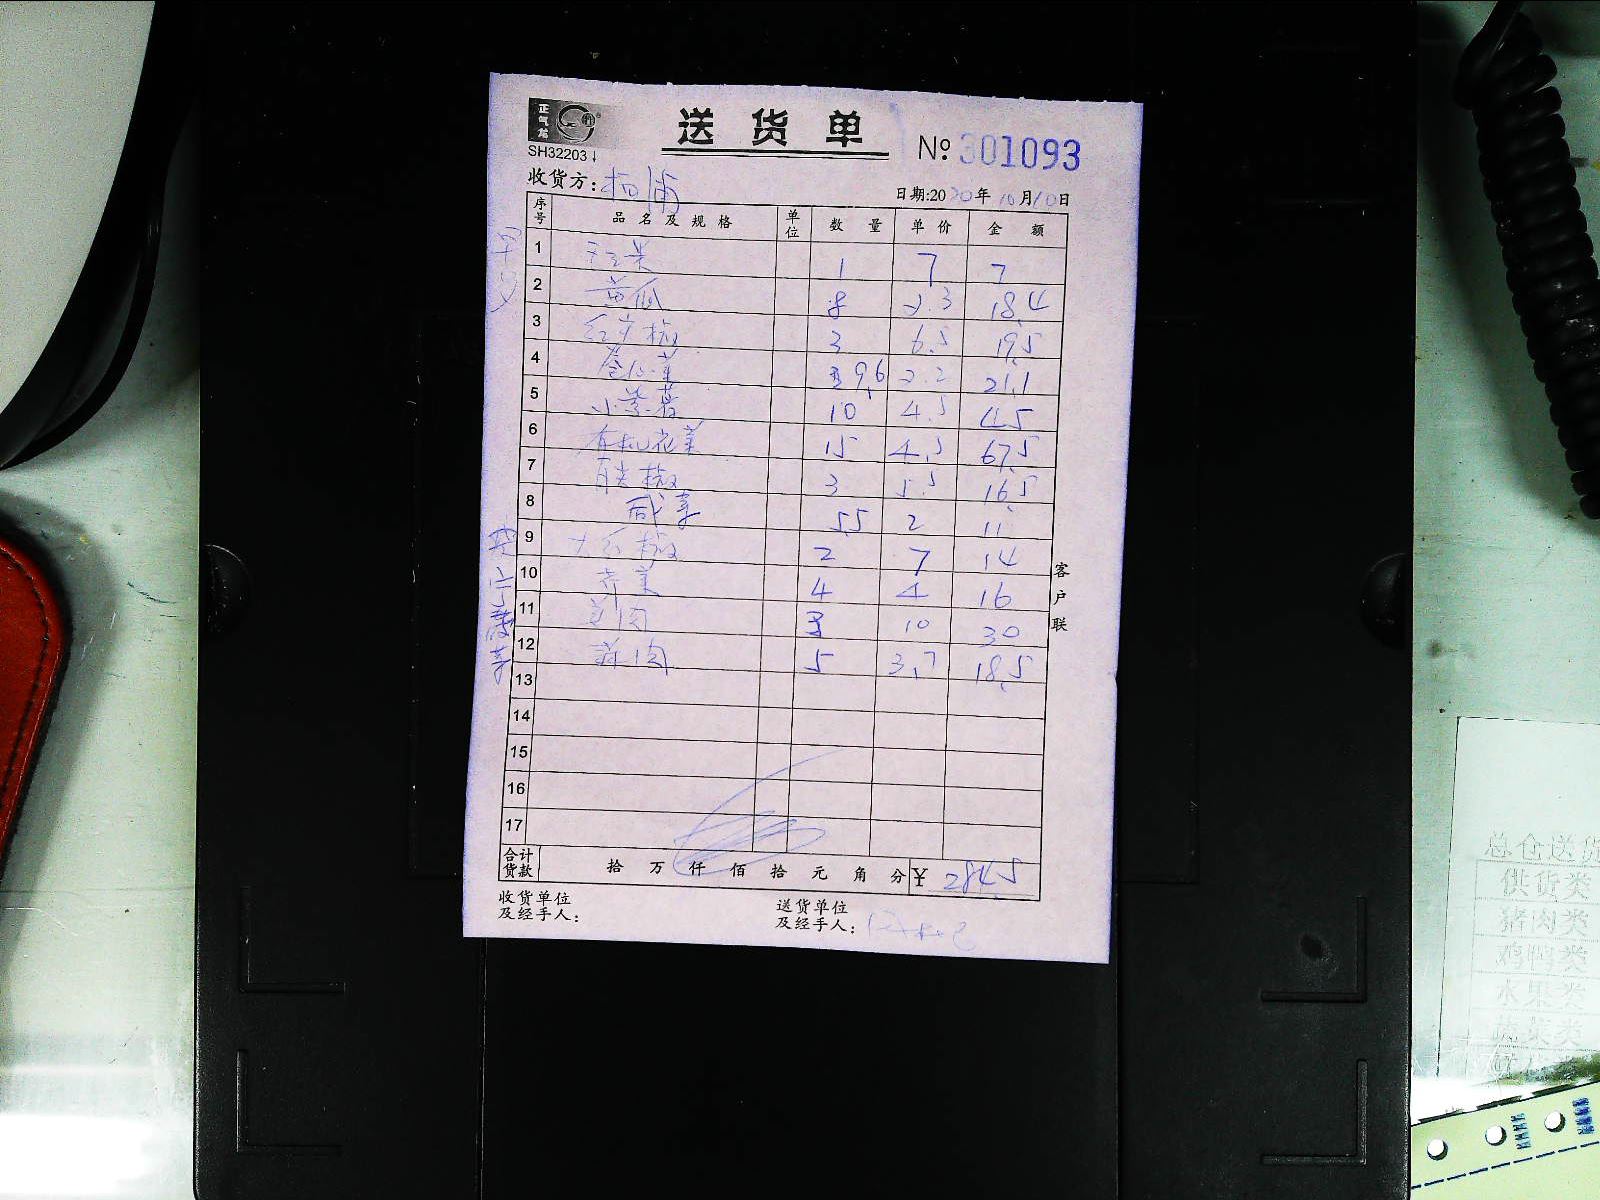 正气龙
送货单
SH32203
№ 301093
收货方:杨浦
日期:2020年10月10日
序号 品名及规格 单位 数量 单价 金额
1 1 7 7
2 黄瓜 8 2.3 18.4
3 红尖椒 3 6.5 19.5
4 卷心菜 9.6 2.2 21.1
5 小紫薯 10 4.5 45
6 有机花菜 15 4.5 67.5
7 青尖椒 3 5.5 16.5
8 咸菜 5.5 2 11
9 大红椒 2 7 14
10 4 4 16
11 3 10 30
12 5 3.7 18.5
13
14
15
16
17
合计货款 拾 万 仟 佰 拾 元 角 分 ¥ 284.5
收货单位及经手人:
送货单位及经手人:
客户联
总仓送货
供货类
猪肉类
鸡鸭类
水果类
蔬菜类